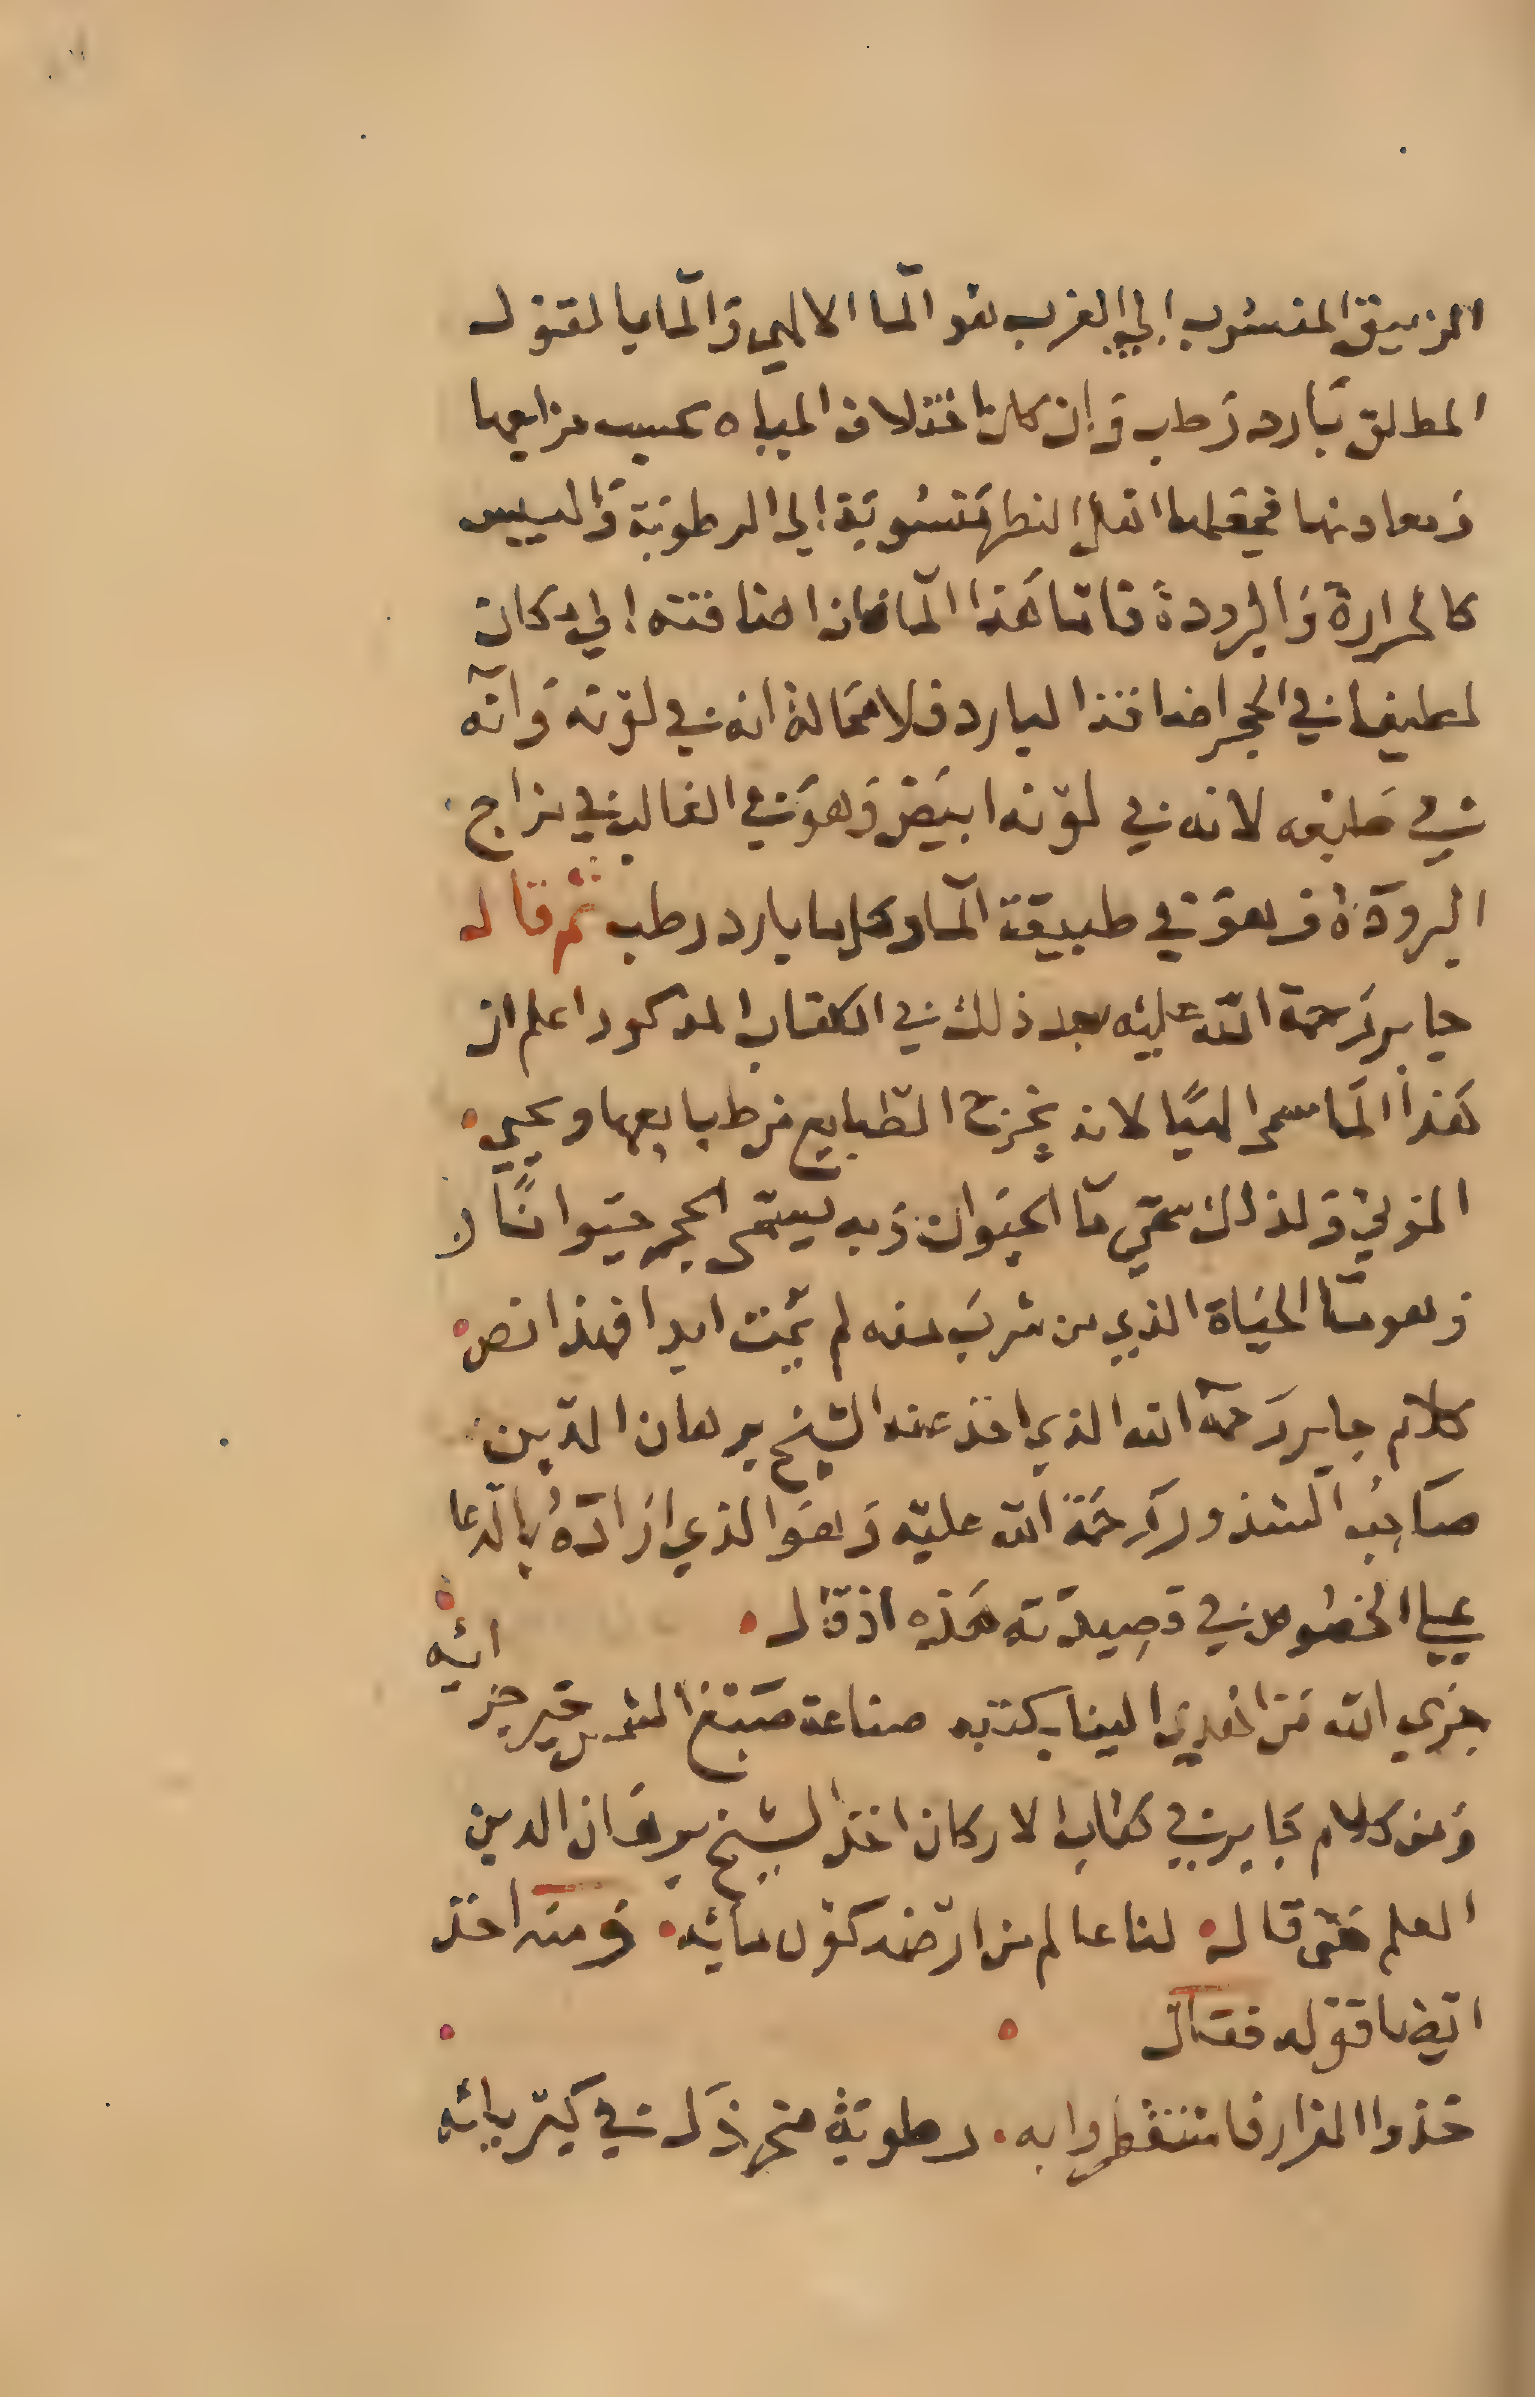 الزيبق المنسوب إلى الغرب هو المآ الالهي وَالمآ يا لقول
المطلق بَارد رَطب وَإن كان اختلاف المياه بحسب مزاجها
وَمعادنها فجعلها اهل النظر مَنسُوبَة إلى الرطوبَة وَاليبس
كالحرارة وَالبرودة فامّا هَذا المآ فان اضافته إلى كان
لطيفا في الحجر اضافة البارد فلا محَالة انه في لوّنه وَانّه
في طَبعه لانه في لوّنه ابيَض وَهوَ في الغالب في مزاج
البروَدة وَهوَ في طبيعَة المآ وكل ما بارد رطب ثم قال
جابر رَحمة الله عليْه بعد ذلك في الكتاب المذكور اعلم ان
هَذا المَا سمى الهيًا لانه يخرج الطبايع من طبايعها ويحيي
الموتى وَلذلك سمّي مآ الحيَوان وَبه يسمّى الحجر حيَوانًا
وَهو مآ الحيَاة الذي من شربَ منه لم يمت ابدا فهذا نص
كلام جابر رَحمة الله الذي اخذ عنه الشيخ برهان الدّين
صَاحبُ الشذور رَحمَة الله عليْه وَهوَ الذي ارَادَهُ بالدّعا
على الخصُوص في قصِيدَته هَذه اذ قال
جزي الله مَن اهدى الينا بكتبه صناعة صَبغ الشمس خيرَ جزائه
وَمن كلام جَابر في كتاب الاركان اخذ الشيخ برهَان الدين
العلم حَتى قال لنا عالم من ارضه كوْن مائه وَمنه اخذ
ايْضا قوْله فقال
خذوا الفرار فاستنقطروا به رطوبَة منحر ذَل في كبْريائه